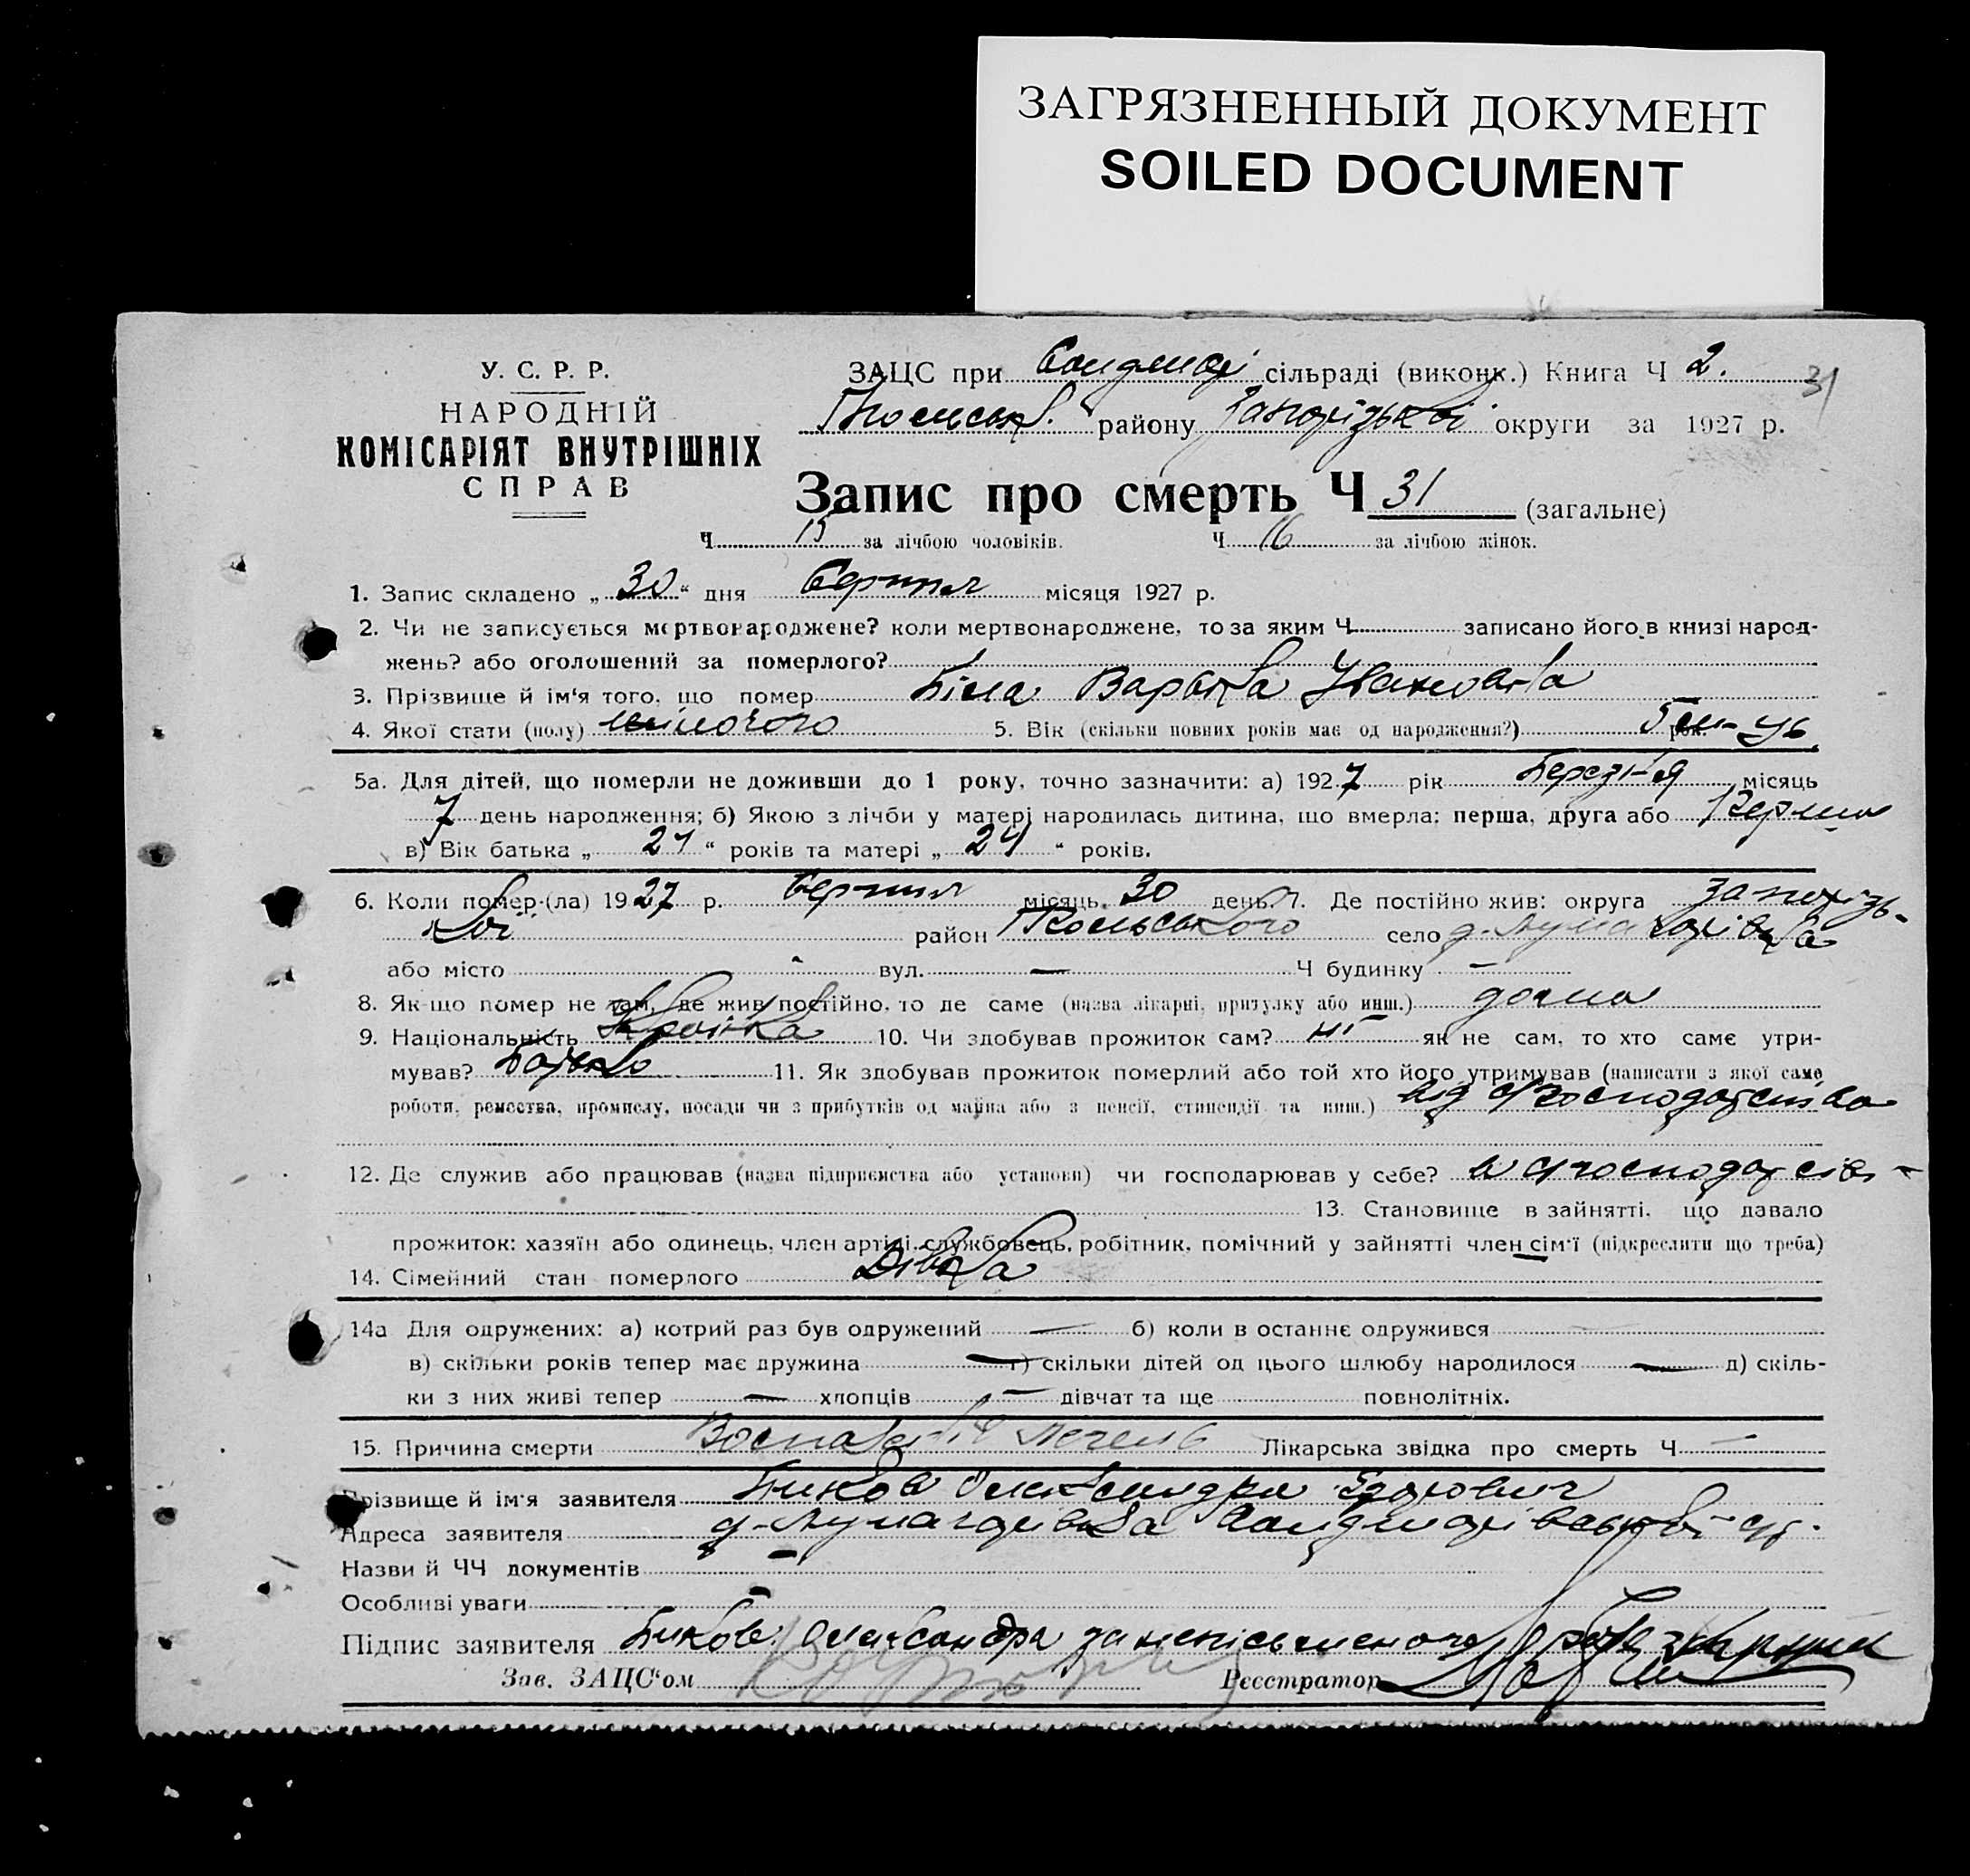 ЗАГРЯЗНЕННЫЙ ДОКУМЕНТ
SOILED DOCUMENT
У. С. Р. Р.
НАРОДНІЙ
КОМІСАРІЯТ ВНУТРІШНІХ
СПРАВ
ЗАЦС при сільраді (виконк.) Книга Ч 2. 31
району Запорізької округи за 1927 р.
Запис про смерть Ч 31 (загальне)
Ч 15 за лічбою чоловіків. Ч 16 за лічбою жінок.
1. Запис складено „30“ дня Серпня місяця 1927 р.
2. Чи не записується мертвонароджене? коли мертвонароджене, то за яким Ч записано його в книзі народ-
жень? або оголошений за померлого?
3. Прізвище й ім'я того, що помер Біла Варвара Івановна
4. Якої стати (полу) жіночого 5. Вік (скільки повних років має од народження?) 5 рок.
5а. Для дітей, що померли не доживши до 1 року, точно зазначити: а) 1927 рік Березня місяць
7 день народження; б) Якою з лічби у матері народилась дитина, що вмерла: перша, друга або Перша
в) Вік батька „24“ років та матері „24“ років.
6. Коли помер-(ла) 1927 р. Серпня місяць 30 день. 7. Де постійно жив: округа Запорізь-
кої район село
або місто вул. — Ч будинку —
8. Як-що помер не там, де жив постійно, то де саме (назва лікарні, притулку або инш.) дома
9. Національність Українка 10. Чи здобував прожиток сам? ні як не сам, то хто саме утри-
мував? Батько 11. Як здобував прожиток померлий або той хто його утримував (написати з якої саме
роботи, ремества, промислу, посади чи з прибутків од майна або з пенсії, стипендії та инш.) від с/господарства
12. Де служив або працював (назва підприємства або установи) чи господарював у себе? в с/господарстві
13. Становище в зайнятті, що давало
прожиток: хазяїн або одинець, член артілі, службовець, робітник, помічний у зайнятті член сім'ї (підкреслити що треба)
14. Сімейний стан померлого Дівка
14а Для одружених: а) котрий раз був одружений — б) коли в останнє одружився
в) скільки років тепер має дружина — г) скільки дітей од цього шлюбу народилося — д) скіль-
ки з них живі тепер — хлопців — дівчат та ще повнолітніх.
15. Причина смерти Лікарська звідка про смерть Ч —
Прізвище й ім'я заявителя Биков Олександра
Адреса заявителя
Назви й ЧЧ документів —
Особливі уваги —
Підпис заявителя Биков Олександра
Зав. ЗАЦС'ом Реєстратор